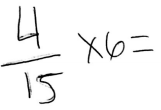 4/15 ×6=